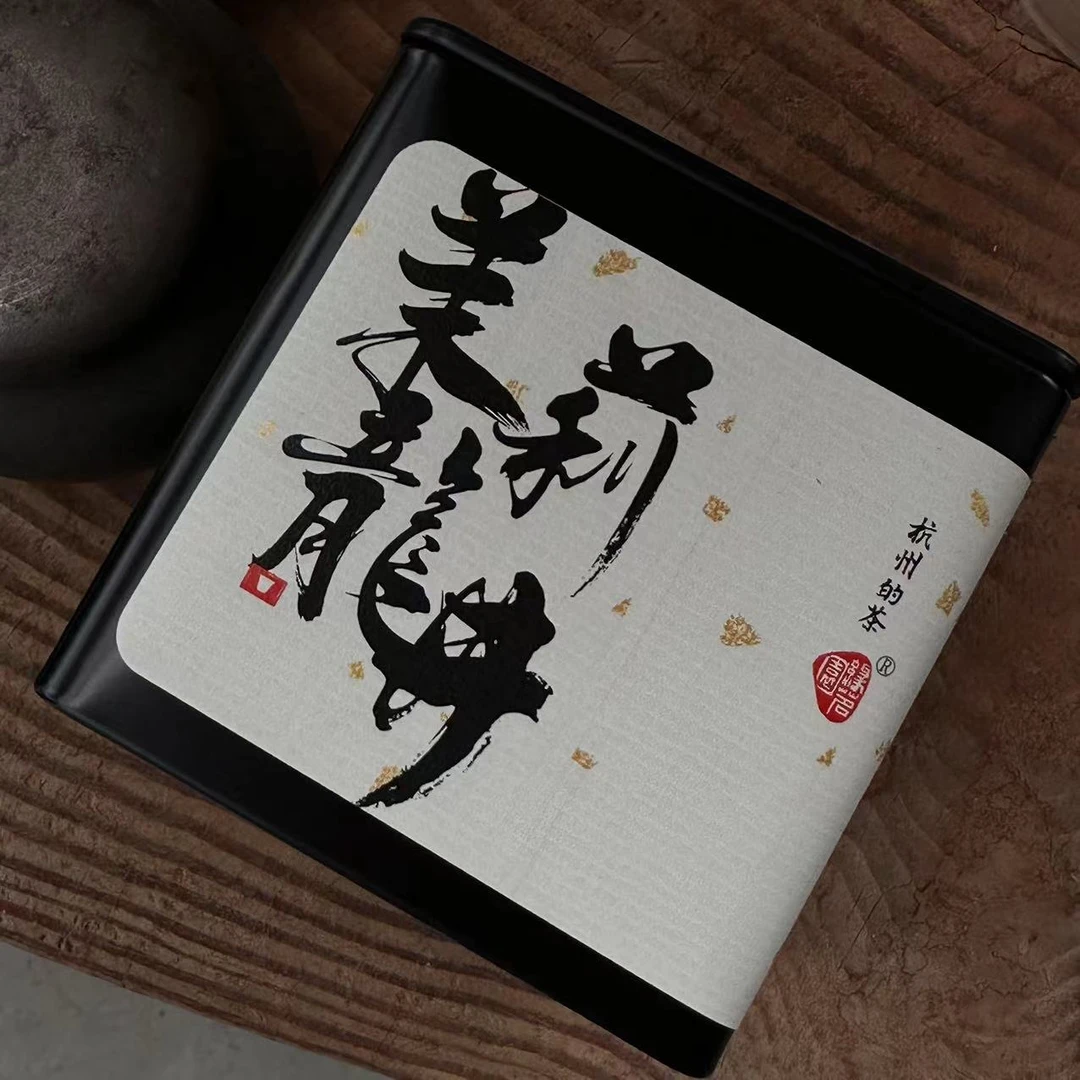 茉莉
龍井
杭州的茶
®